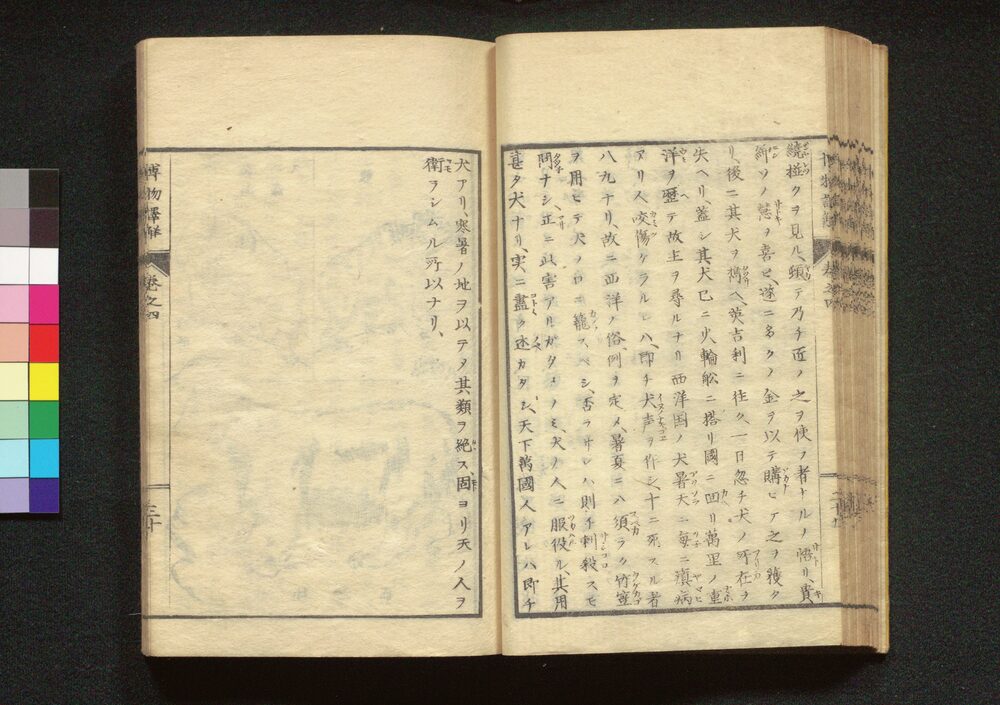 繞樾クヲ見ル、頭テ乃チ匠ノ之ヲ使フ者ナルノ悟リ、貴
紳ソノ慧ヲ喜ヒ、遂ニ多クノ金ヲ以テ購ヒテ之ヲ獲タ
リ、後ニ其犬ヲ携ヘ、英吉利ニ往ク、一日忽チ犬ノ所在ヲ
失ヘリ、蓋シ其犬已ニ火輪舩ニ搭リ國ニ回リ萬里ノ重
洋ヲ歴テ故主ヲ尋ルナリ西洋国ノ犬暑天ニ毎ニ瘨病
アリ人咬傷ケラルレハ、即チ犬声ヲ作シ、十ニ死スル者
八九ナリ、故ニ西洋ノ俗、例ヲ定メ、暑夏ニハ須ラク竹箜
ヲ用ヒテ犬ノ口ニ籠スベシ、否ラサレハ則チ刺殺スモ
問ナシ正ニ此害アルガタメノミ、犬ノ人ニ服役ル、其用
甚タ大ナリ、実ニ盡ク述カタシ、天下萬國人アレハ即チ
犬アリ、寒暑ノ地ヲ以テメ其類ヲ絶ス固ヨリ天ノ人ヲ
衛ヲシムル所以ナリ、
博物譯解 巻之四
三十